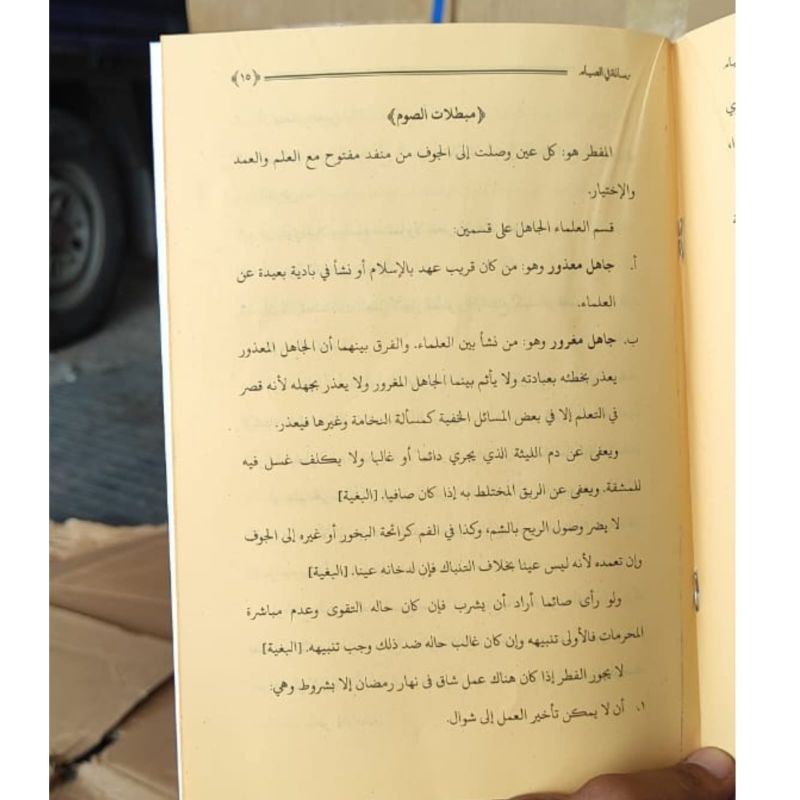 رسالة في الصيام ﴿١٥﴾
﴿مبطلات الصوم﴾
المفطر هو: كل عين وصلت إلى الجوف من منفد مفتوح مع العلم والعمد
والإختيار.
قسم العلماء الجاهل على قسمين:
أ. جاهل معذور وهو: من كان قريب عهد بالإسلام أو نشأ في بادية بعيدة عن
العلماء.
ب. جاهل مغرور وهو: من نشأ بين العلماء. والفرق بينهما أن الجاهل المعذور
يعذر بخطئه بعبادته ولا يأثم بينما الجاهل المغرور ولا يعذر بجهله لأنه قصر
في التعلم إلا في بعض المسائل الخفية كمسألة النخامة وغيرها فيعذر.
ويعفى عن دم الليثة الذي يجري دائما أو غالبا ولا يكلف غسل فيه
للمشقة. ويعفى عن الريق المختلط به إذا كان صافيا. [البغية]
لا يضر وصول الريح بالشم، وكذا في الفم كرائحة البخور أو غيره إلى الجوف
وإن تعمده لأنه ليس عينا بخلاف التنباك فإن لدخانه عينا. [البغية]
ولو رأى صائما أراد أن يشرب فإن كان حاله التقوى وعدم مباشرة
المحرمات فالأولى تنبيهه وإن كان غالب حاله ضد ذلك وجب تنبيهه. [البغية]
لا يجوز الفطر إذا كان هناك عمل شاق في نهار رمضان إلا بشروط وهي:
١. أن لا يمكن تأخير العمل إلى شوال.